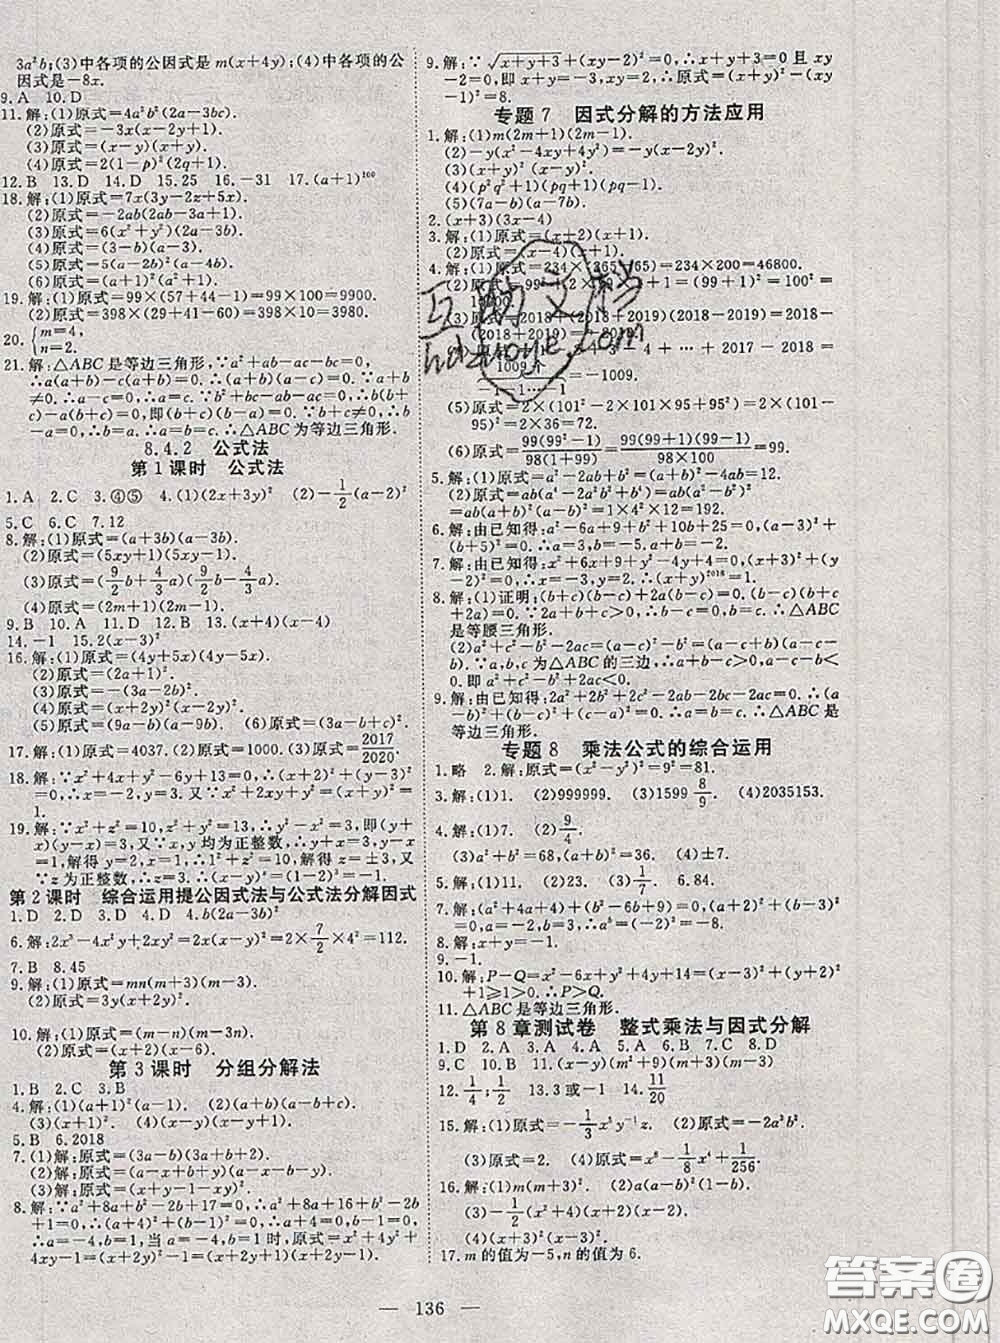 3a²b;(3)中各项的公因式是m(x+4y);(4)中各项的公
因式是-8x.
9.A 10.D
11.解:(1)原式=4a²b²(2a-3bc).
(2)原式=-3x(x-2y+1).
(3)原式=(x-y)(x+y).
(4)原式=2(1-p)²(2q+1).
12.B 13.D 14.D 15.25 16.-31 17.(a+1)¹⁰⁰
18.解:(1)原式=7x(3y-2z+5x).
(2)原式=-2ab(2ab-3a+1).
(3)原式=6(x²+y²)(2x-3y).
(4)原式=(3-b)(a-b).
(5)原式=(a-2b)(a-3b).
(6)原式=(a+1)²(a²+1).
19.解:(1)原式=99×(57+44-1)=99×100=9900.
(2)原式=398×(29+41-60)=398×10=3980.
20.{m=4,
n=2.
21.解:△ABC是等边三角形,∵a²+ab-ac-bc=0,
∴a(a+b)-c(a+b)=0,∴(a+b)(a-c)=0,∵a+b
≠0,∴a-c=0,∴a=c.∵b²+bc-ab-ac=0,∴b(b+
c)-a(b+c)=0,即(b+c)(b-a)=0,∵b+c≠0,∴b
-a=0,∴b=a,∴a=b=c.∴△ABC为等边三角形.
8.4.2 公式法
第1课时 公式法
1.A 2.C 3.④⑤ 4.(1)(2x+3y)² (2)-1/2(a-2)²
5.C 6.C 7.12
8.解:(1)原式=(a+3b)(a-3b).
(2)原式=(5xy+1)(5xy-1).
(3)原式=(9/2b+4/3a)(9/2b-4/3a).
(4)原式=(2m+1)(2m-1).
9.B 10.A 11.D 12.B 13.(x+4)(x-4)
14.-1 15.2(x-3)²
16.解:(1)原式=(4y+5x)(4y-5x).
(2)原式=(2a+1)².
(3)原式=-(3a-2b)².
(4)原式=(x-y-2)².
(5)原式=(9a-b)(a-9b). (6)原式=(3a-b+c)².
17.解:(1)原式=4037.(2)原式=1000.(3)原式=2017/2020.
18.解:∵x²+4x+y²-6y+13=0,∴(x+2)²+(y-3)²
=0,∴x=-2,y=3.又∵x²=1,∴(-2)²=1,∴z=
1.
19.解:∵x²+z²=10,z²+y²=13,∴y²-x²=3,即(y+
x)(y-x)=3,又∵x,y均为正整数,∴y+x=3,y-x
=1,解得y=2,x=1,∴1²+z²=10,解得z=±3,又
∵z为正整数,∴z=3.∴(x-y)ᶻ=(1-2)³=-1.
第2课时 综合运用提公因式法与公式法分解因式
1.D 2.D 3.D 4.D 4.b(2a-3b)²
6.解:2x³-4x²y+2xy²=2x(x-y)²=2×7/2×4²=112.
7.B 8.45
9.解:(1)原式=mn(m+3)(m-3).
(2)原式=3y(x+2y)².
10.解:(1)原式=(m-n)(m-3n).
(2)原式=(x+2)(x-6).
第3课时 分组分解法
1.B 2.C 3.B
4.解:(1)(a+1)²(a-1). (2)(a+b)(a-b+c).
(3)(x+1)(x-y). (4)(x-y)(x-y+3).
5.B 6.2018
7.(1)解:原式=(3a-b)(3a+b+2).
(2)解:原式=(a-x+y)(a+x-y).
(3)解:原式=(x+y-1-xy)².
8.解:∵a²+8a+b²-2b+17=0,∴a²+8a+16+b²-2b
+1=0,∴(a+4)²+(b-1)²=0,∴a+4=0,b-1=0,
∴a=-4,b=1,当a=-4,b=1时,原式=x²+4y²+
4xy-1=(x+2y)²-1=(x+2y+1)(x+2y-1).
9.解:∵√(x+y+3)+(xy-2)²=0,∴x+y+3=0且xy
-2=0,即x+y=-3,xy=2,∴原式=(x+y)²-(xy
-1)²=8.
专题7 因式分解的方法应用
1.解:(1)m(2m+1)(2m-1).
(2)-y(x²-4xy+4y²)=-y(x-2y)².
(3)(x+y)(x-y)³.
(4)(p²q²+1)(pq+1)(pq-1).
(5)(7a-b)(7b-a).
2.(x+3)(3x-4)
3.解:(1)原式=(x+2)(x+1).
(2)原式=(x-4)(x+1).
4.解:(1)原式=234×(365-165)=234×200=46800.
(5)原式=2×(101²-2×101×95+95²)=2×(101-
95)²=2×36=72.
(6)原式=99(99²-1)/98(1+99)=99(99+1)(99-1)/98×100=99.
5.解:(1)原式=a²-2ab+b²=(a+b)²-4ab=12.
(2)原式=ab(a⁴-2a²b²+b⁴)=ab(a²-b²)²
=ab(a+b)²(a-b)²=1×4²×12=192.
6.解:由已知得:a²-6a+9+b²+10b+25=0,(a-3)²+
(b+5)²=0.∴a=3,b=-5.∴a-b=8.
7.解:由已知得:x²+6x+9+y²-4y+4=0,(x+3)²+(y
-2)²=0.∴x=-3,y=2.∴(x+y)²⁰¹⁸=1.
是等腰三角形.
(2)a²+c²-b²-2ac=(a-c)²-b²=(a-c+b)(a-c-
b).∵a,b,c为△ABC的三边,∴a+b-c>0,a-c-b
<0.即a²-b²+c²-2ac<0.
9.解:由已知得:2a²+2b²+2c²-2ab-2bc-2ac=0.(a
-b)²+(b-c)²+(a-c)²=0.∴a-b=0,b-c=0,a-
c=0,∴a=b=c,△ABC是等边三角形.
专题8 乘法公式的综合运用
1.略 2.解:原式=(x²-y²)²=9²=81.
3.解:(1)1. (2)999999. (3)1599 8/9. (4)2035153.
4.解:(1)7. (2)9/4.
(3)a²+b²=68,(a-b)²=36. (4)±7.
5.解:(1)23. (2)21. (3)1/7. 6.84.
7.解:(a²+4a+4)+(b²-6b+9)=0,(a+2)²+(b-3)²
=0,∴a=-2,b=3.
8.解:x+y=-1.
9.-1.
10.解:P-Q=x²-6x+y²+4y+14=(x-3)²+(y+2)²
+1⩾1>0.∴P>Q.
11.△ABC是等边三角形.
第8章测试卷 整式乘法与因式分解
1.D 2.A 3.A 4.A 5.A 6.B 7.C 8.D
9.C 10.A 11.(x-y)(m²+9)(m+3)(m-3)
12.1/4;1/2 13.3或-1 14.11/20
15.解:(1)原式=-1/3x⁵y⁻¹z.(2)原式=-2a³b².
(3)原式=2. (4)原式=x⁸-1/8x⁴+1/256.
16.解:(1)m(m+3)². (2)a(a-2b)(a-b).
(3)-1/2(x²+4)(x+2)(x-2).
(4)(x+3)²(x-3)².
17.m的值为-5,n的值为6.
136
互助文档
hdzuoye.com
答案圈
MXQE.COM